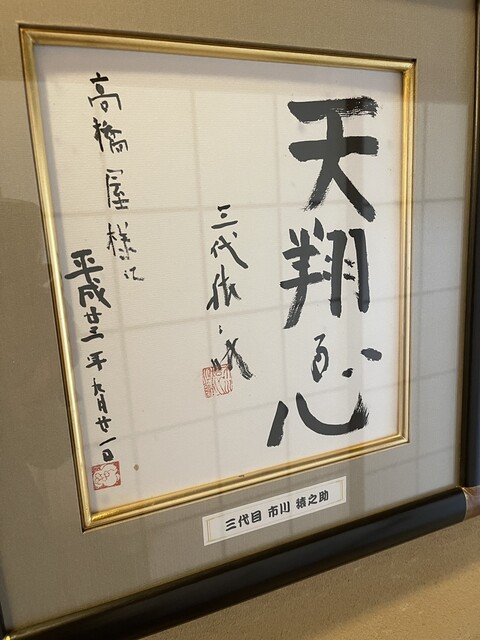 天翔る心
三代猿之助
高橋屋様江
平成廿三年九月廿一日
三代目 市川 猿之助